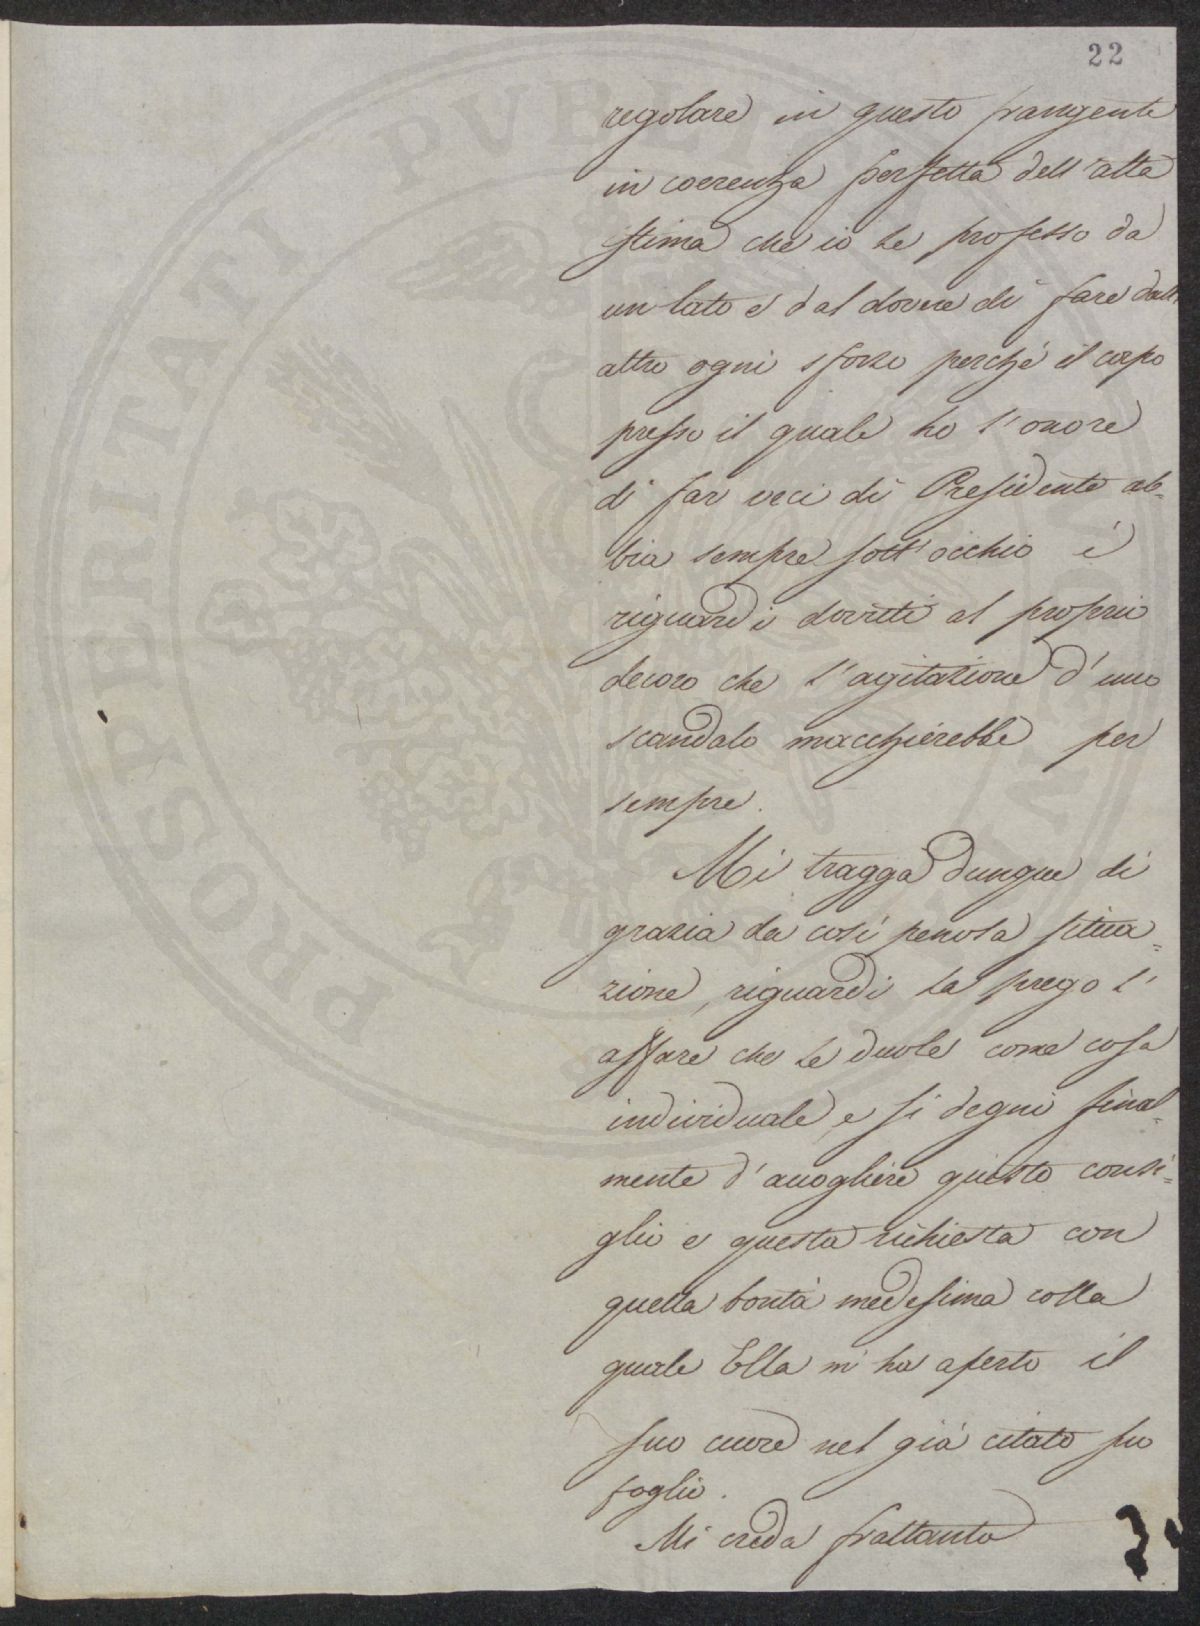 22
regolare in questo frangente
in coerenza perfetta dell'alta
stima che io Le professo da
un lato e dal dovere di fare dall'
altro ogni sforzo perché il corpo
presso il quale ho l'onore
di far veci di Presidente ab=
bia sempre sott'occhio i
riguardi dovuti al proprio
decoro che l'agitazione d'uno
scandalo macchierebbe per
sempre.
Mi tragga dunque di
grazia da così penosa situa=
zione, riguardi La prego l'
affare che Le duole come cosa
individuale, e si degni final=
mente d'accogliere questo consi=
glio e questa richiesta con
quella bontà medesima colla
quale Ella m'ha aperto il
suo cuore nel già citato suo
foglio.
Mi creda frattanto
PROSPERITATI PVBLI